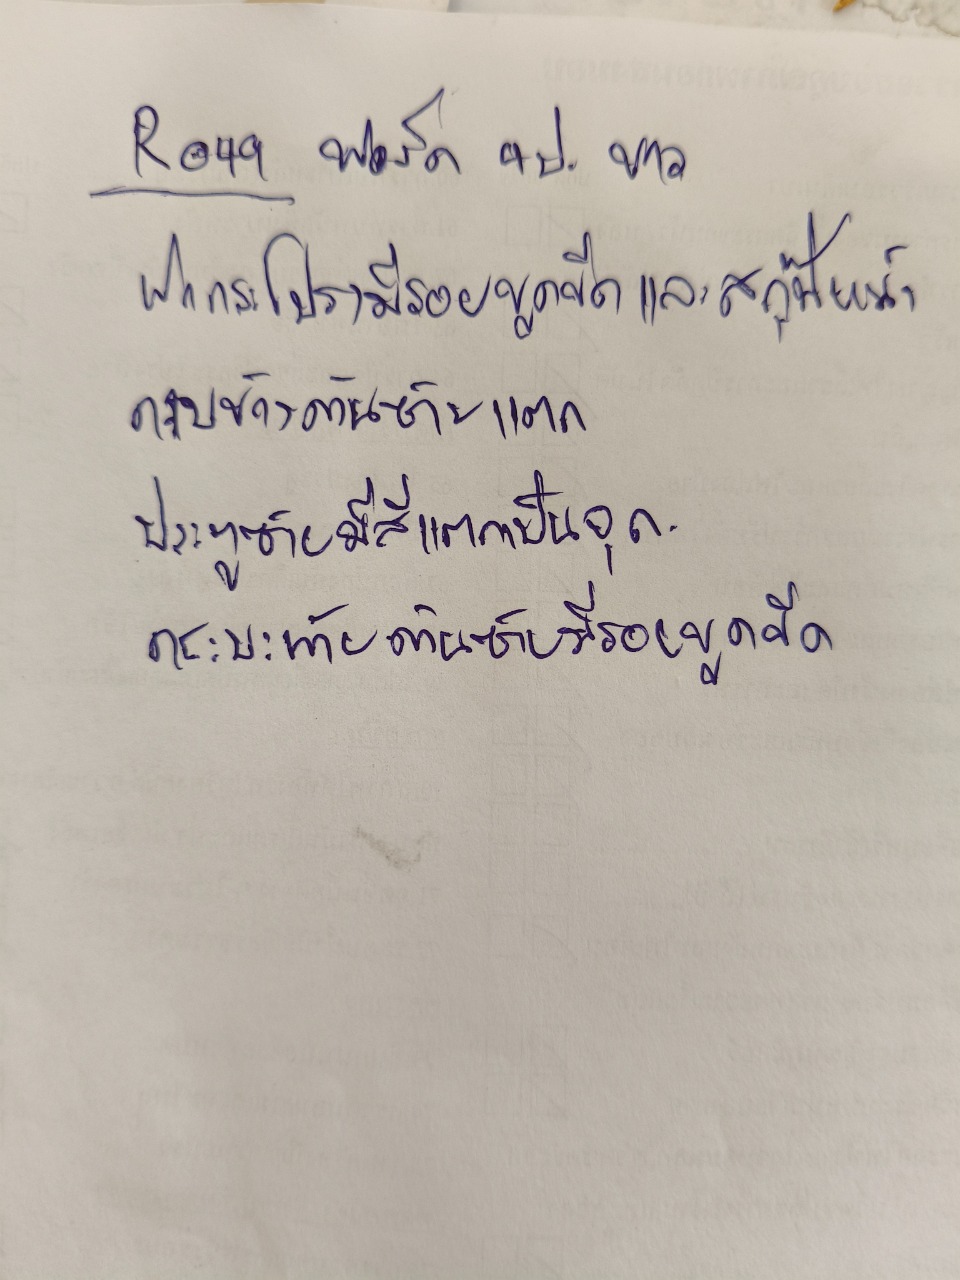 R049 ฟอร์ด 4ป. ขาว
ฝากระโปรงมีรอยขูดขีดและสกู๊ปหน้า
กาบข้างด้านซ้ายแตก
ประตูซ้ายมีสีแตกเป็นจุด.
กระบะท้ายด้านซ้ายมีรอยขูดขีด